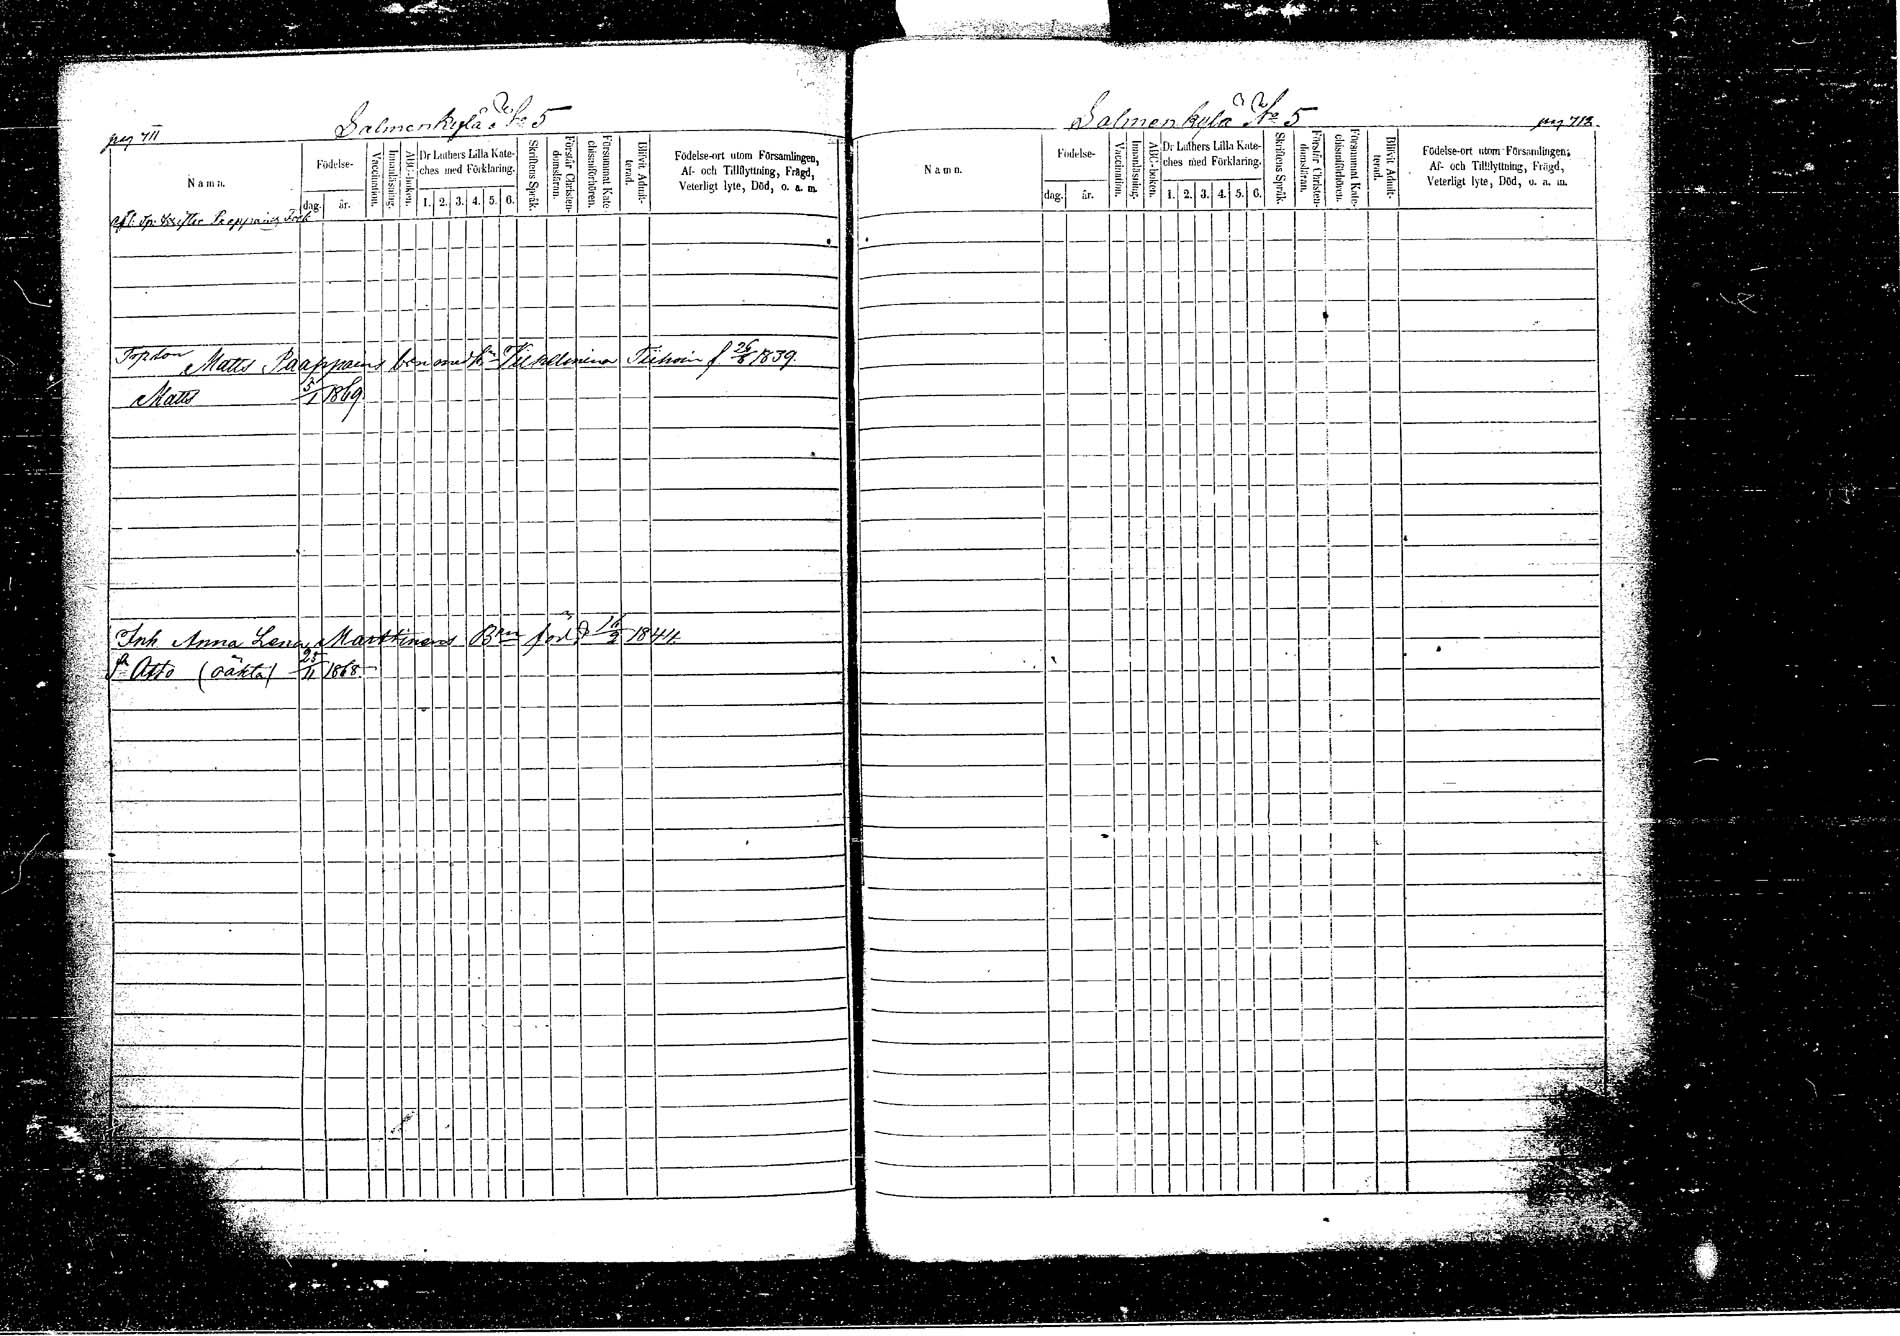 pag 711
Salmenkylä No 5
Namn.
Födelse-
dag.
år.
Vaccination.
Innanläsning.
ABC-boken.
Dr Luthers Lilla Kate-
ches med Förklaring.
1. 2. 3. 4. 5. 6.
Skriftens Språk.
Förstår Christen-
domsläran.
Försummat Kate-
chismiförhören.
Blifvit Admit-
terad.
Födelse-ort utom Församlingen,
Af- och Tillflyttning, Frägd,
Veterligt lyte, Död, o. a. m.
Paappains
Matts Paappains barn med Vilhelmina Tiihoin f 26/8 1839.
Matts 5/1 1869
Inh Anna Lena Marttinens Barn född 16/2 1844.
Otto (oäkta) 25/11 1868
Salmenkylä No 5
pag 712.
Namn.
Födelse-
dag.
år.
Vaccination.
Innanläsning.
ABC-boken.
Dr Luthers Lilla Kate-
ches med Förklaring.
1. 2. 3. 4. 5. 6.
Skriftens Språk.
Förstår Christen-
domsläran.
Försummat Kate-
chismiförhören.
Blifvit Admit-
terad.
Födelse-ort utom Församlingen,
Af- och Tillflyttning, Frägd,
Veterligt lyte, Död, o. a. m.